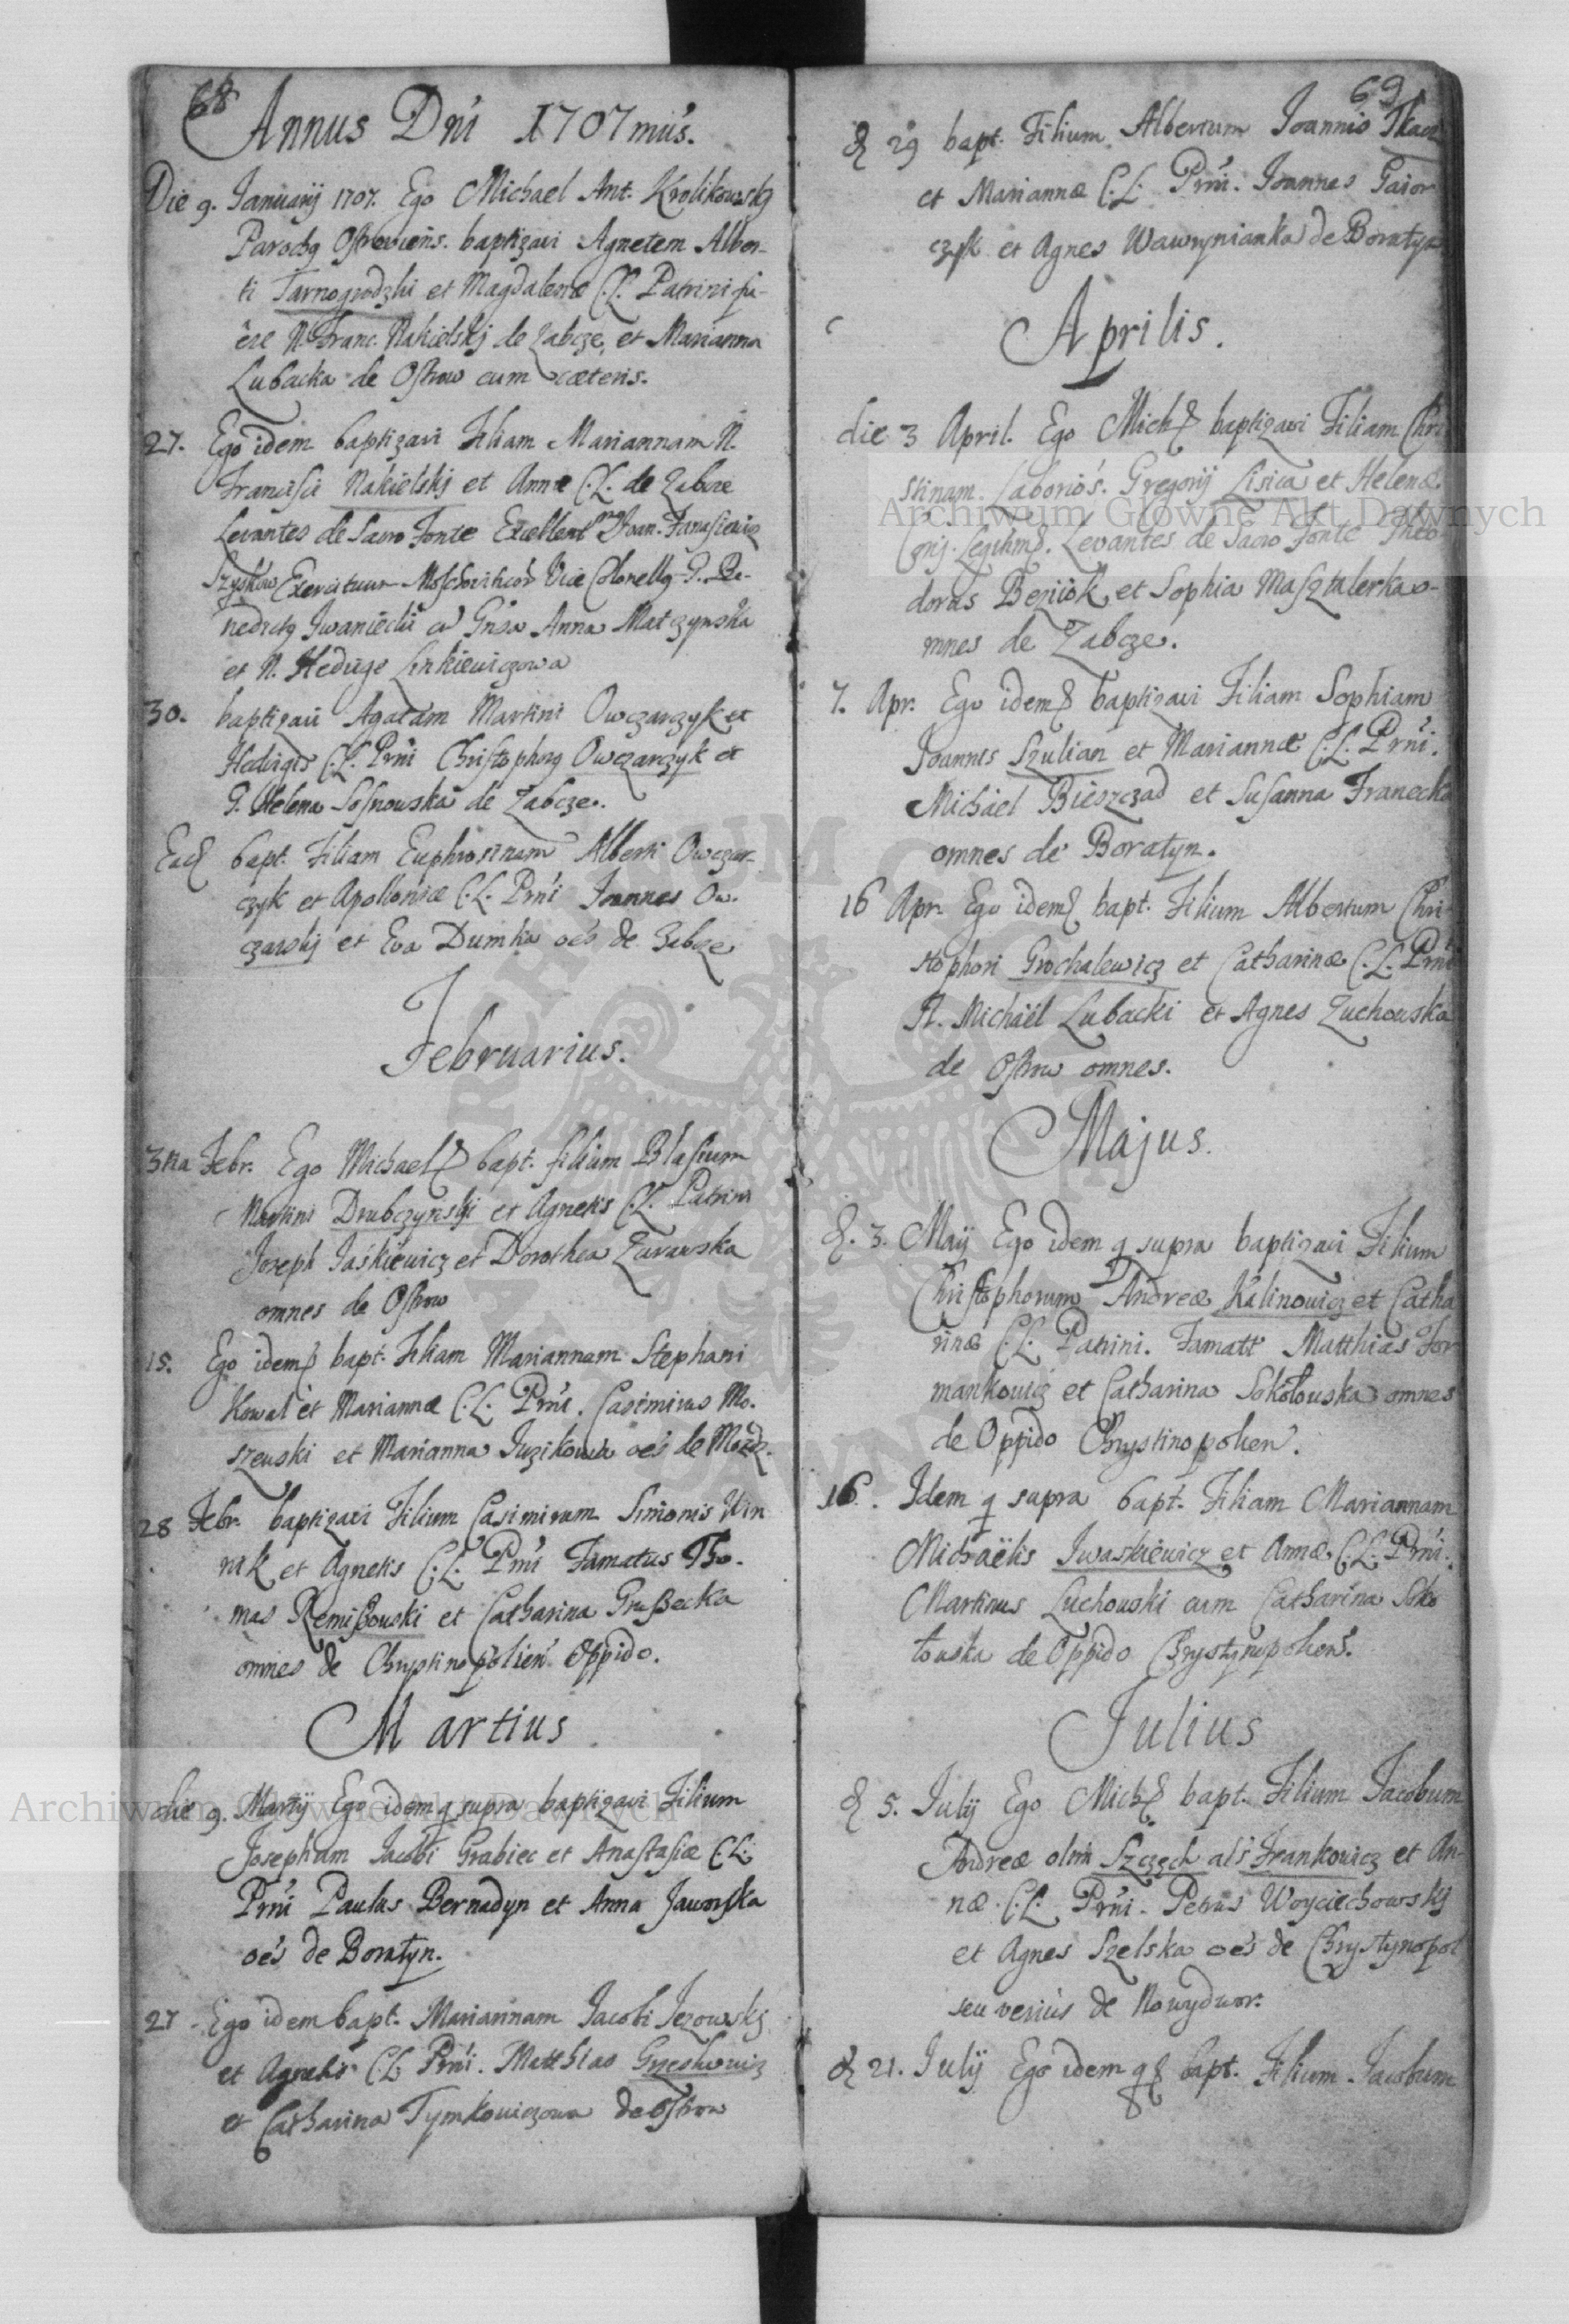 68
Annus Dni 1707 mus.
Die 9. Januarij 1707. Ego Michael Ant. Krolikowskj
Parochg Ostroviens. baptizavi Agnetem Alber-
ti Tarnogrodzki et Magdalenæ C.L. Patrini fu-
ere N. Franc. Nakielskj de Zabcze, et Marianna
Lubacka de Ostrow cum cæteris.
27. Ego idem baptizavi Filiam Mariannam N.
Francisci Nakielskj et Annæ C.L. de Zabcze
Levantes de Sacro Fonte Excellent Joan.
Exercituum Vice Colonellg G. Be-
nedictg Iwaniecki Gnsa Anna Matczynska
et N. Heduige Linkiewiczowa
30. baptizavi Agatam Martini Owczarczyk et
Hedvigis C.L. Prni Christophorg Owczarczyk et
G. Helena Sosnowska de Zabcze.
Ead bapt. Filiam Euphrosinam Alberti Owczar-
czyk et Apolloniæ C.L. Prni Joannes Ow-
czarskj et Eva Dumka oes de Zabcze
Februarius.
3tia Febr. Ego Michael bapt. filium Blasium
Martini Drubczynskj et Agnetis C.L. Patrini
Joseph Jaskiewicz et Dorothea Zurawska
omnes de Ostrow
15. Ego idem bapt. Filiam Mariannam Stephani
Kowal et Mariannæ C.L. Prni. Casimirus Mo-
szewski et Marianna Juzikowa oes de
28 Febr. baptizavi Filium Casimirum Simonis Win
nik et Agnetis C.L. Prni Famatus Tho-
mas Remiszowski et Catharina Grussecka
omnes de Chrystinopolien Oppido.
Martius
die 9. Martij Ego idem q supra baptizavi Filium
Josephum Jacobi Grabiec et Anastasiæ C.L.
Prni Paulus Bernadyn et Anna Jaworska
oes de Boratyn.
27 Ego idem bapt. Mariannam Jacobi Jezowskj
et Agnetis C.L. Prni. Matthias
et Catharina Tymkowiczowa de Ostrow
69
d 29 bapt. Filium Albertum Joannis Tkacz
et Mariannæ C.L. Prni. Joannes Gaior
czyk et Agnes Wawrynianka de Boratyn
Aprilis.
die 3 April. Ego Mich baptizavi Filiam Chri
stinam. Laborios. Gregorij Lisica et Helenæ
Conj. Legitim. Levantes de Sacro Fonte Theo
dorus Beziuk et Sophia Masztalerka o-
mnes de Zabcze.
7. Apr. Ego idem baptizavi Filiam Sophiam
Joannis Szulian et Mariannæ C.L. Prni.
Michael Bieszczad et Susanna Franecka
omnes de Boratyn.
16 Apr. Ego idem bapt. Filium Albertum Chri-
stophori Grochalewicz et Catharinæ C.L. Prni
N. Michaël Lubacki et Agnes Zuchowska
de Ostrow omnes.
Majus.
d. 3. Maij Ego idem q supra baptizavi Filium
Christophorum Andreæ Kalinowicz et Catha
rinæ C.L. Patrini. Famatt Matthias For
mankowicz et Catharina Sokołouska omnes
de Oppido Chrystinopolien.
16. Idem q supra bapt. Filiam Mariannam
Michaëlis Iwaskiewicz et Annæ C.L. Prni.
Martinus Luchouski cum Catharina Soko
łouska de Oppido Chrystynopolien.
Julius
d 5. Julij Ego Mich bapt. Filium Jacobum
Andreæ olim Szczech als Frankowicz et An-
næ C.L. Prni. Petrus Woyciechowskj
et Agnes Szelska oes de Chrystynopol
seu verius de Nowydwor.
d 21. Julij Ego idem q bapt. Filium Jacobum
Archiwum Główne Akt Dawnych
Archiwum Główne Akt Dawnych